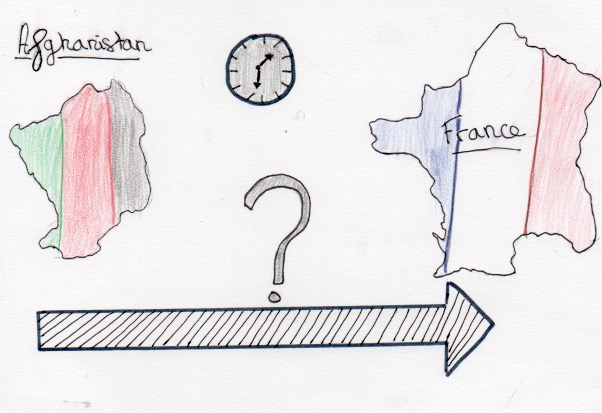 Afghanistan
France
?